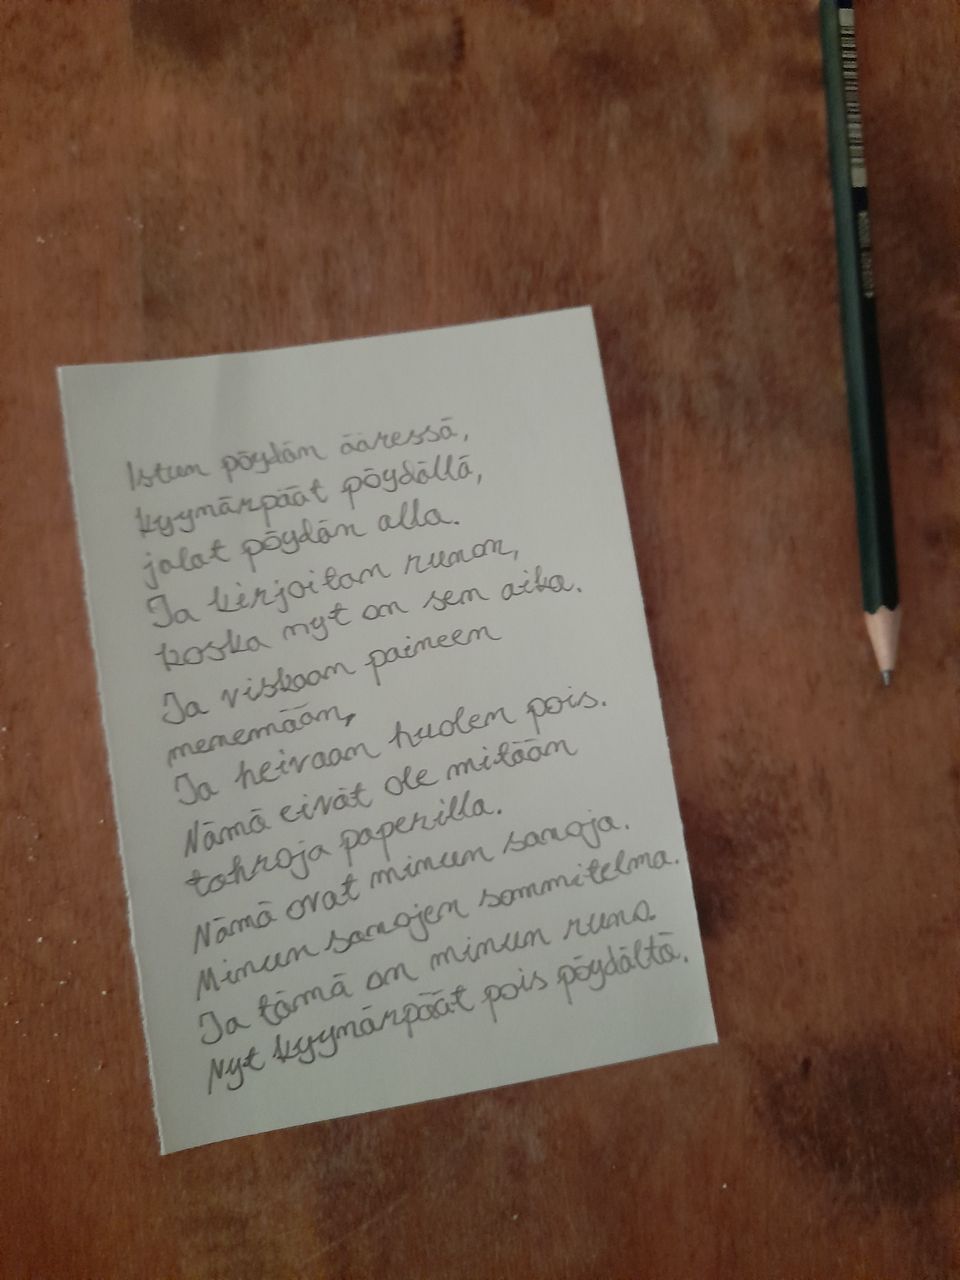 Istun pöydän ääressä,
kyynärpäät pöydällä,
jalat pöydän alla.
Ja kirjoitan runon,
koska nyt on sen aika.
Ja viskaan paineen
menemään,
Ja heivaan huolen pois.
Nämä eivät ole mitään
tahroja paperilla.
Nämä ovat minun sanoja.
Minun sanojen sommitelma.
Ja tämä on minun runo.
Nyt kyynärpäät pois pöydältä.